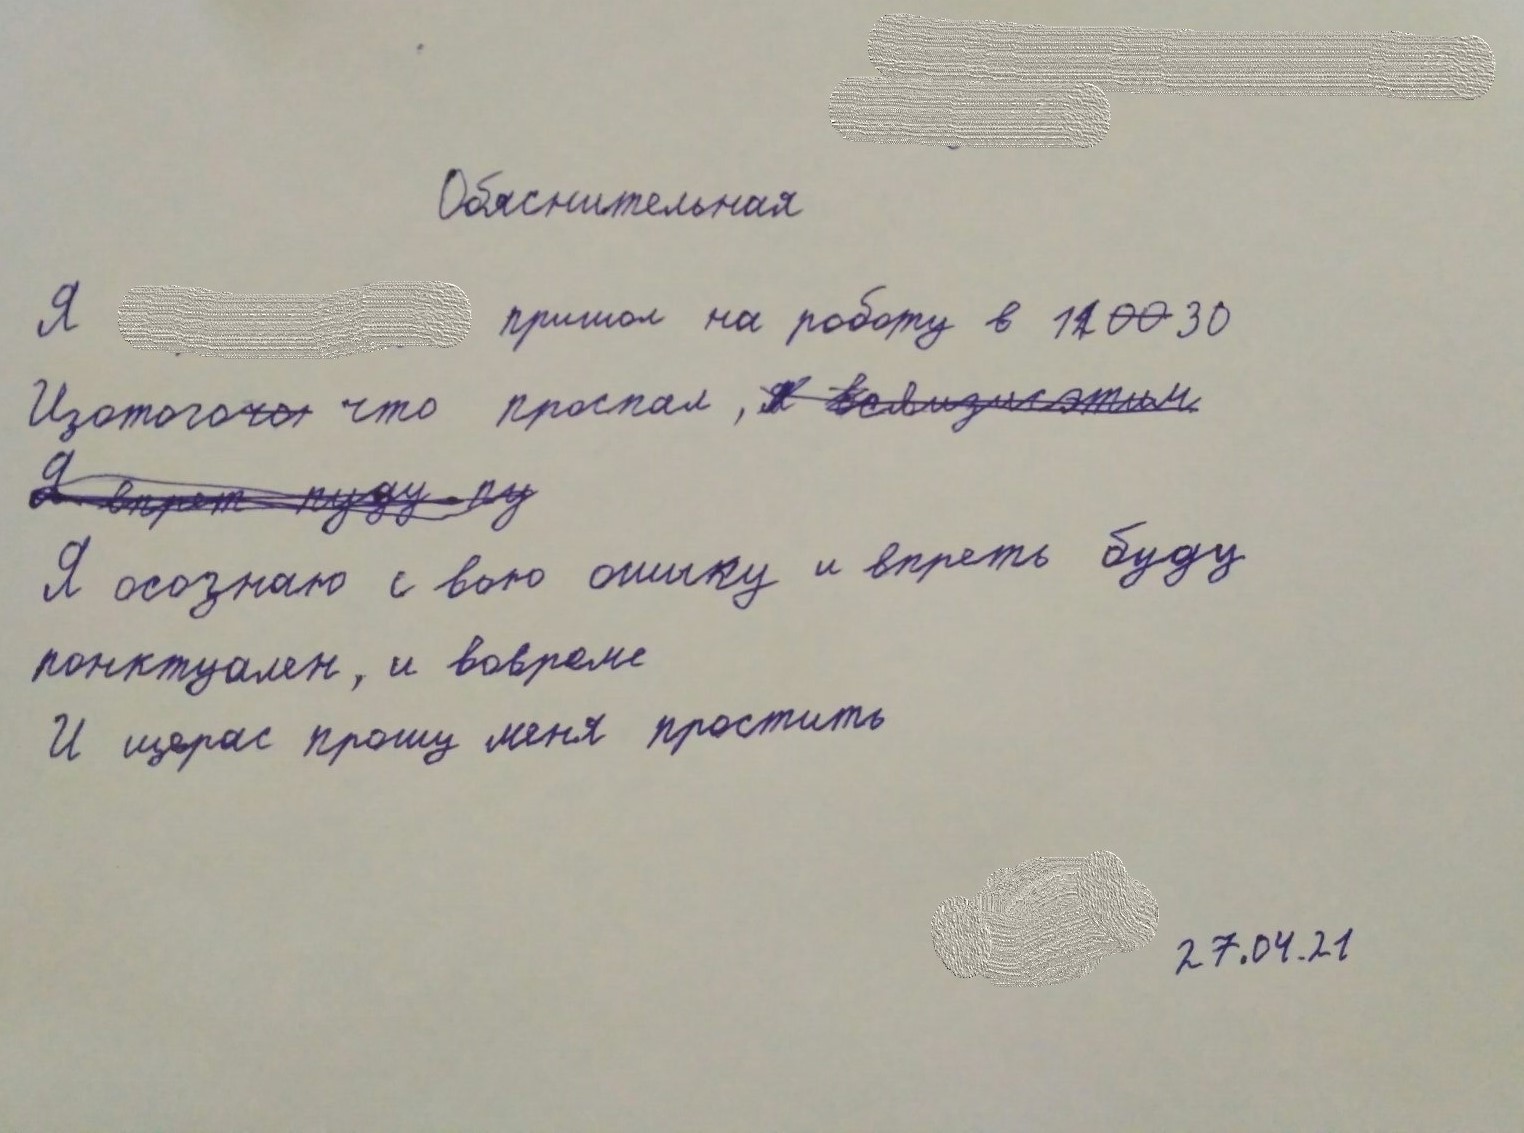 Обяснительная
Я пришол на роботу в 11 00 30
Изотогочо что проспал, я всявизисэтим
Я впрет пуду пу
Я осознаю с вою ошыку и впреть буду
понктуален, и вовреме
И щерас прошу меня простить
27.04.21